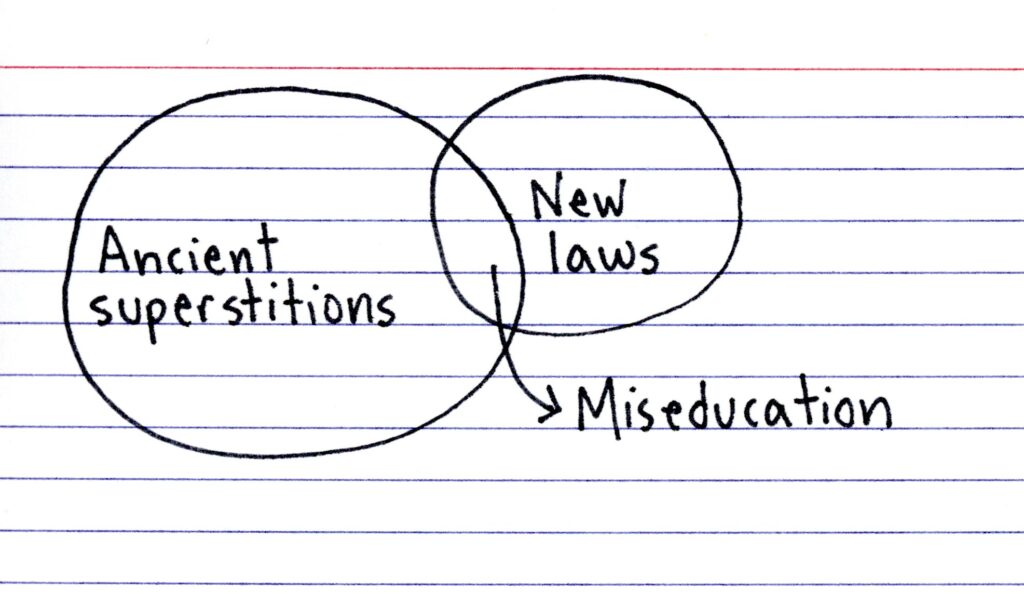 Ancient
superstitions
New
laws
Miseducation